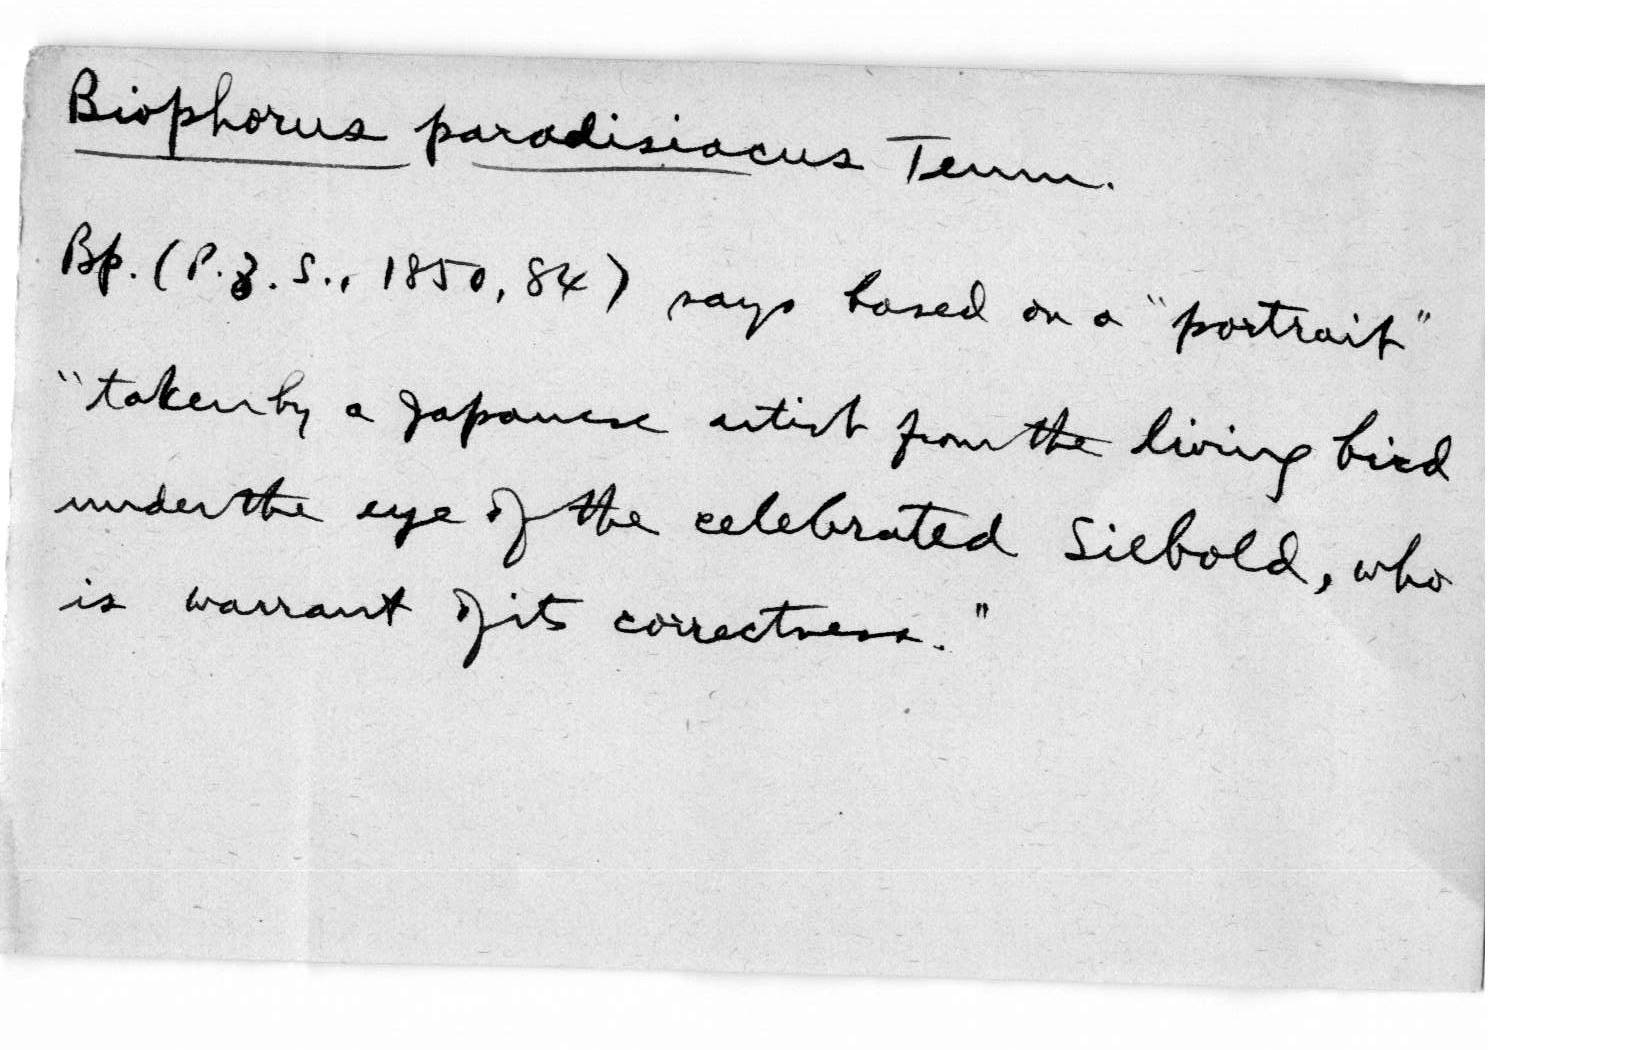 Biophorus paradisiacus Temm.
Bp. (P.Z.S., 1850, 84) says based on a "portrait"
"taken by a Japanese artist from the living bird
under the eye of the celebrated Siebold, who
is warrant of its correctness."